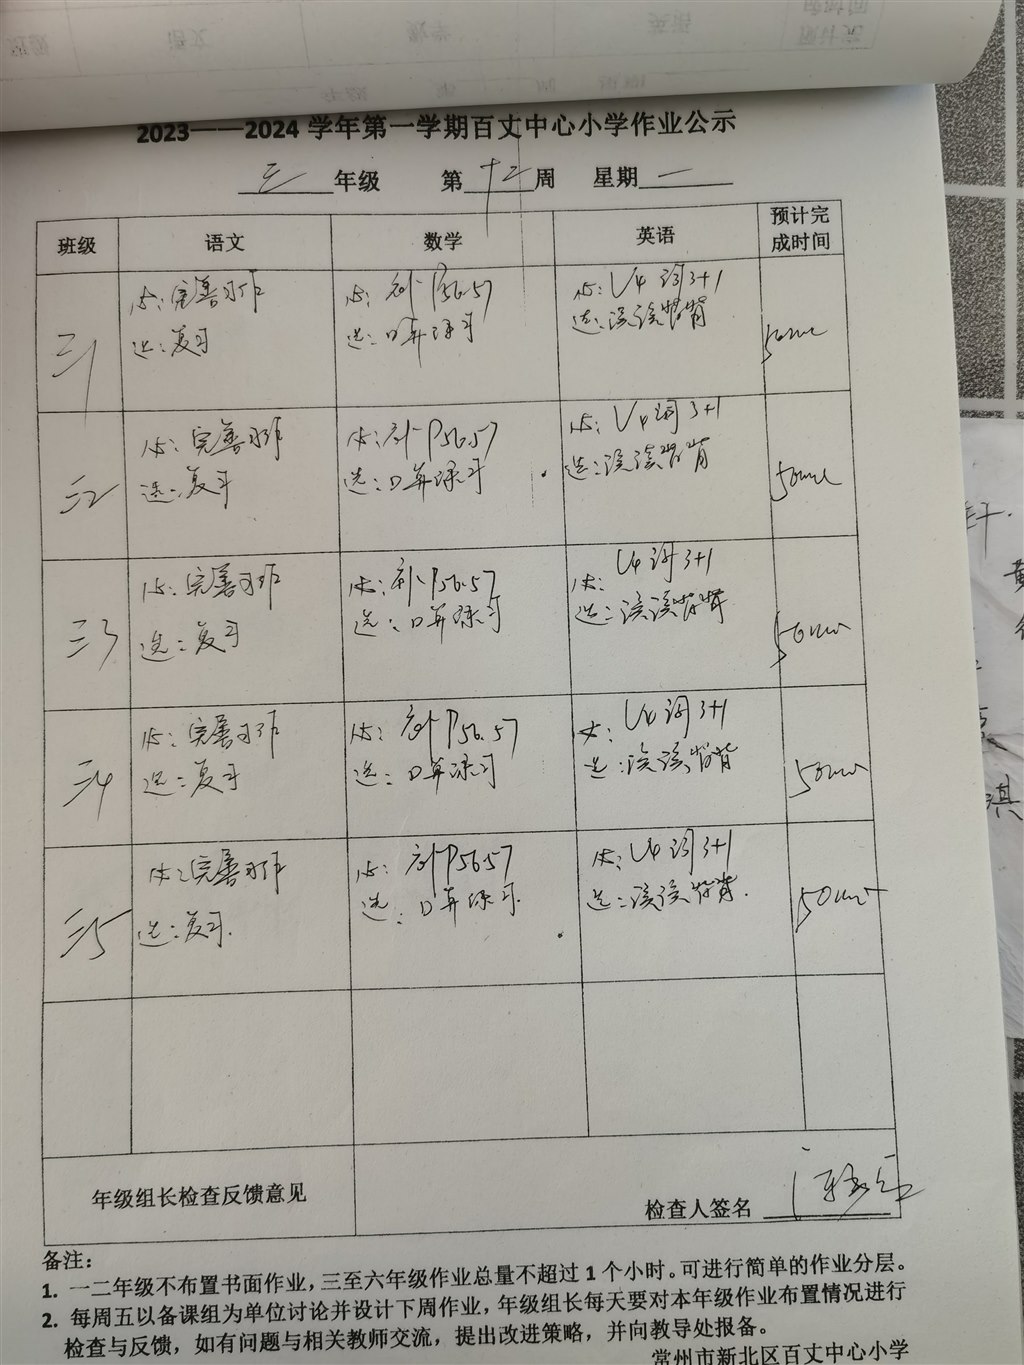 2023——2024 学年第一学期百丈中心小学作业公示
三 年级 第 十二 周 星期 一
班级 语文 数学 英语 预计完成时间
三1
必: 完善习作
选: 复习
必: 补P56.57
选: 口算练习
必: U4 词3+1
选: 读读背背
50min
三2
必: 完善习作
选: 复习
必: 补P56.57
选: 口算练习
必: U4词3+1
选: 读读背背
50min
三3
必: 完善习作
选: 复习
必: 补P56.57
选: 口算练习
必: U4词3+1
选: 读读背背
50min
三4
必: 完善习作
选: 复习
必: 补P56.57
选: 口算练习
必: U4词3+1
选: 读读背背
50min
三5
必: 完善习作
选: 复习.
必: 补P56.57
选: 口算练习.
必: U4词3+1
选: 读读背背.
50min
年级组长检查反馈意见
检查人签名
备注:
1. 一二年级不布置书面作业，三至六年级作业总量不超过 1 个小时。可进行简单的作业分层。
2. 每周五以备课组为单位讨论并设计下周作业，年级组长每天要对本年级作业布置情况进行
检查与反馈，如有问题与相关教师交流，提出改进策略，并向教导处报备。
常州市新北区百丈中心小学